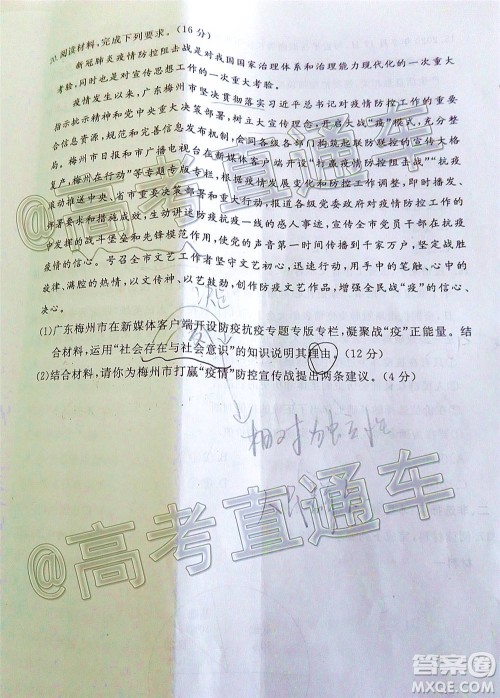 20. 阅读材料,完成下列要求。(16 分)
新冠肺炎疫情防控阻击战是对我国国家治理体系和治理能力现代化的一次重大
考验,同时也是对宣传思想工作的一次重大考验。
疫情发生以来,广东梅州市坚决贯彻落实习近平总书记对疫情防控工作的重要
指示批示精神和党中央重大决策部署,树立大宣传理念,开启大战“疫”模式,充分整
合信息资源,规范和完善信息发布机制,会同各级各部门构筑起联防联控的宣传大格
局。梅州市日报和市广播电视台在新媒体客户端开设“打赢疫情防控阻击战”“抗疫
复产,梅州在行动”等专题专版专栏,根据疫情发展变化和防控工作调整,即时播发、
滚动推送中央、省市重大决策部署和重大行动,报道各级党委政府对疫情防控工作的
部署要求和措施成效,生动讲述防控抗疫一线的感人事迹,宣传全市党员干部在抗疫
中发挥的战斗堡垒和先锋模范作用,使党的声音第一时间传播到千家万户,坚定战胜
疫情的信心。号召全市文艺工作者坚守文艺初心、迅速行动,用手中的笔触、心中的
旋律、满腔的热情,以文传神、以艺鼓劲,创作防疫文艺精品,增强全民战“疫”的信心、
决心。
(1)广东梅州市在新媒体客户端开设防疫抗疫专题专版专栏,凝聚战“疫”正能量。结
合材料,运用“社会存在与社会意识”的知识说明其理由。(12 分)
(2)结合材料,请你为梅州市打赢“疫情”防控宣传战提出两条建议。(4 分)
相对独立性
@高考直通车
@高考直通车
@高考直通车
答案圈
MXQE.COM